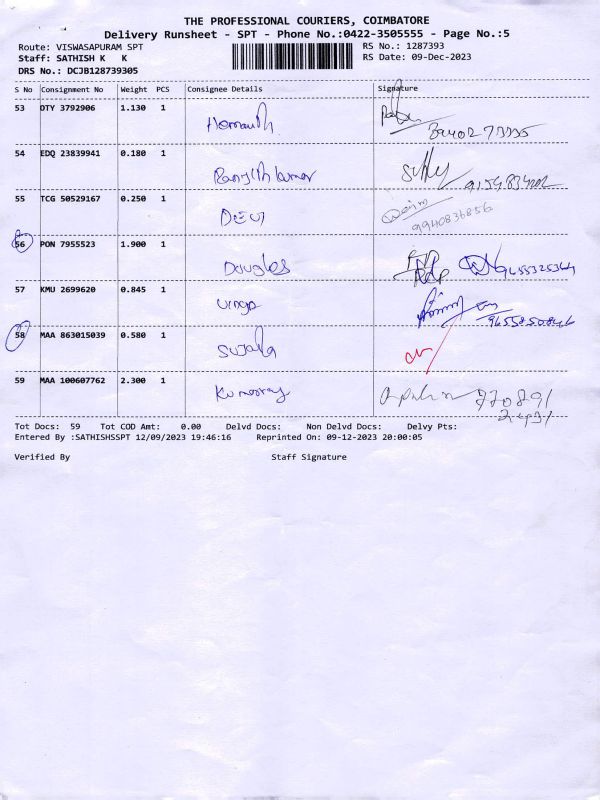 THE PROFESSIONAL COURIERS, COIMBATORE
Delivery Runsheet - SPT - Phone No.:0422-3505555 - Page No.:5
Route: VISWASAPURAM SPT RS No.: 1287393
Staff: SATHISH K K RS Date: 09-Dec-2023
DRS No.: DCJB128739305
S No Consignment No Weight PCS Consignee Details Signature
53 OTY 3792906 1.130 1
54 EDQ 23839941 0.180 1
55 TCG 50529167 0.250 1 DEVI 9940836856
56 PON 7955523 1.900 1 Douglas 9655325364
57 KMU 2699620 0.845 1
58 MAA 863015039 0.580 1 Sujata
59 MAA 100607762 2.300 1
Tot Docs: 59 Tot COD Amt: 0.00 Delvd Docs: Non Delvd Docs: Delvy Pts:
Entered By :SATHISHSSPT 12/09/2023 19:46:16 Reprinted On: 09-12-2023 20:00:05
Verified By Staff Signature